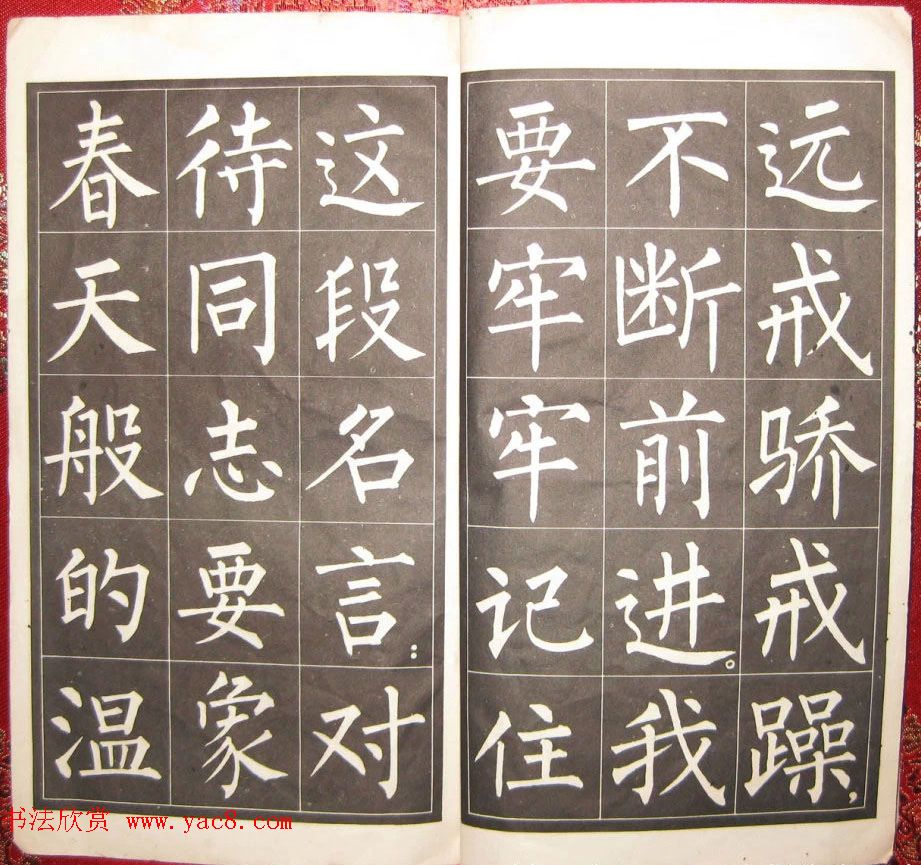 远戒骄戒躁,
不断前进。我
要牢牢记住
这段名言:对
待同志要象
春天般的温
书法欣赏 www.yac8.com